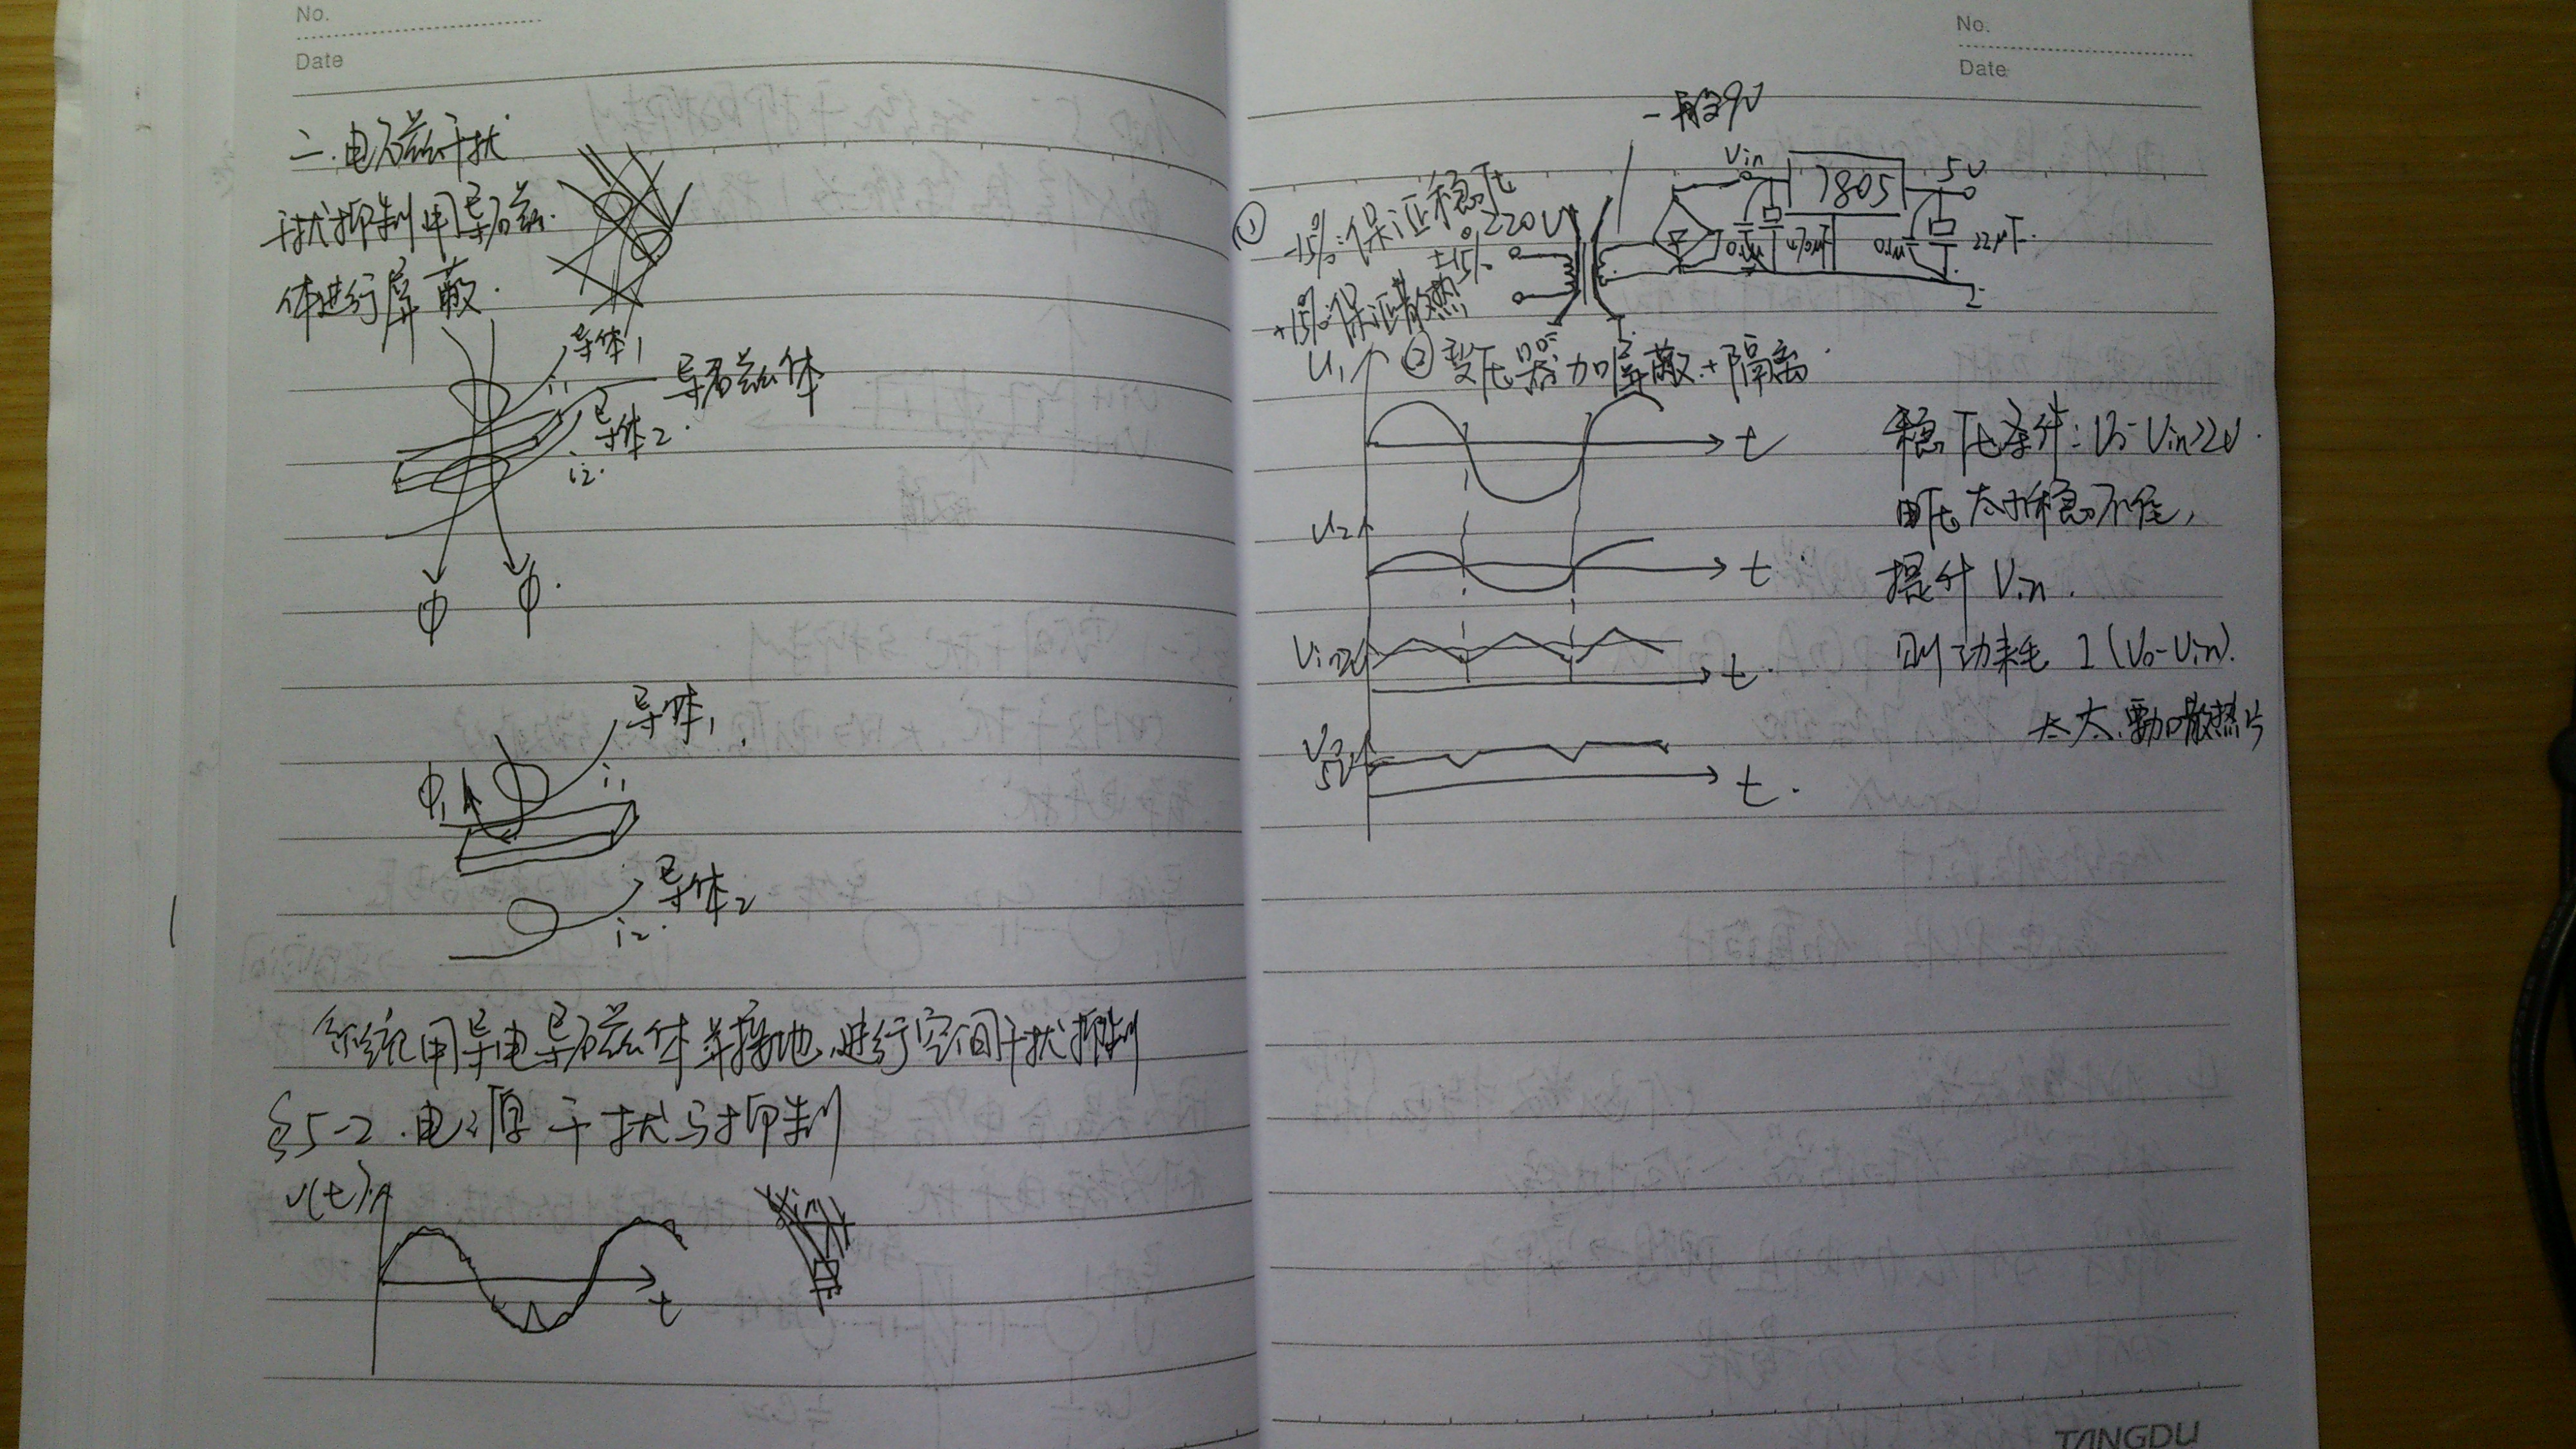 No.
Date
二.电磁干扰
干扰抑制用导磁
体进行屏蔽.
导体1
i1
导磁体
导体2.
i2.
φ φ.
导体1
i1
φ1
导体2
i2.
系统用导电导磁体并接地,进行空间干扰抑制
§5-2.电源干扰与抑制
v(t)
t
No.
Date
一般9V
Vin
7805
5V
①
-15%:保证稳压
220V
±15%
+15%:保证散热
0.1μ
470μF
0.1μ
22μF
②变压器加屏蔽+隔离.
U1
t
稳压条件:V0-Vin>2V.
电压太小稳不住,
U2
t
提升Vin.
则功耗 I(V0-Vin).
t.
太大,要加散热片
t.
TANGDU